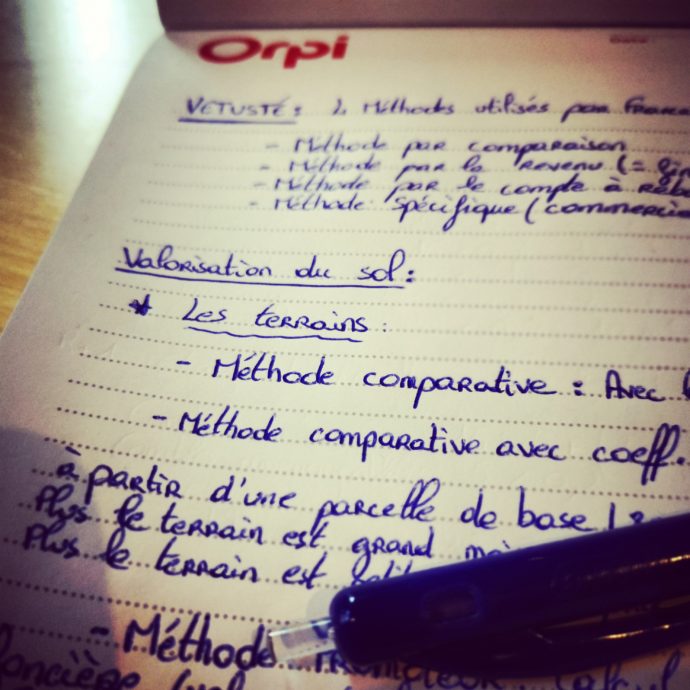 Orpi
VETUSTÉ: 4 Méthodes utilisés par
- Méthode par comparaison
- Méthode par le revenu (=
- Méthode par le compte à
- Méthode spécifique (
Valorisation du sol:
* Les terrains:
- Méthode comparative: Avec
- Méthode comparative avec coeff.
à partir d'une parcelle de base
Plus le terrain est grand
Plus le terrain est
- Méthode